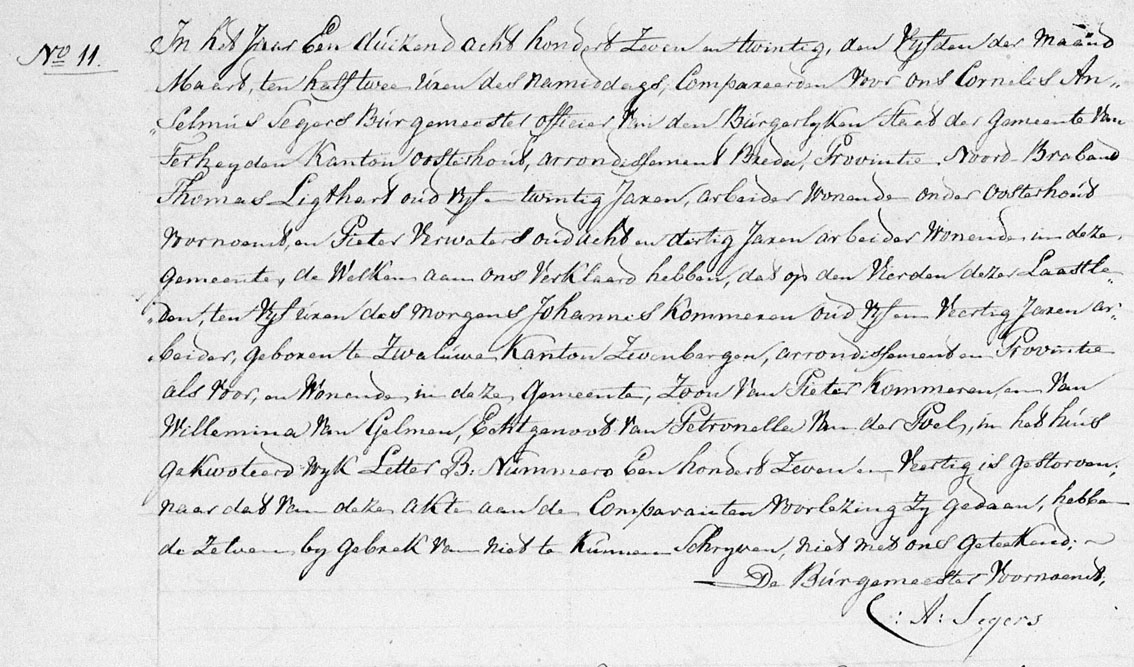 No 11.
In het Jaar Een duizend acht hondert Zeven en twintig, den Vyfden der Maand
Maart, ten half twee uren des namiddags, Compareerden voor ons Cornelis An„
„Selmus Segers Burgemeester officier Van den Burgerlyken Staat der gemeente Van
Terheyden Kanton oosterhout, arrondissement Breda, Provintie Noord-Braband
Thomas Ligthart oud Vyf en twintig Jaren, arbeider Wonende onder oosterhout
Voornoemt, en Pieter Verwaters oud acht en dertig Jaren arbeider Wonende in deze
gemeente, de Welken aan ons Verklaard hebben, dat op den Vierden dezer Laastle„
„den, ten Vyf uren des morgens Johannis Kommeren oud Vyf en Veertig Jaren ar„
„beider, geboren te Zwaluwe Kanton Zevenbergen, arrondissement en Provintie
als Voor, en Wonende in deze gemeente, Zoon Van Pieter Kommeren, en Van
Willemina Van Gelmen, Echtgenoot Van Petronella Van der Poel, in het huis
gekwoteerd Wyk Letter B: Nummero Een hondert Zeven en Veertig is gestorven,
naar dat Van deze akte aan de Comparanten Voorlezing Zy gedaan, hebben
de Zelven by gebrek Van niet te kunnen Schryven, niet met ons geteekend;
De Burgemeester Voornoemt,
C: A: Segers